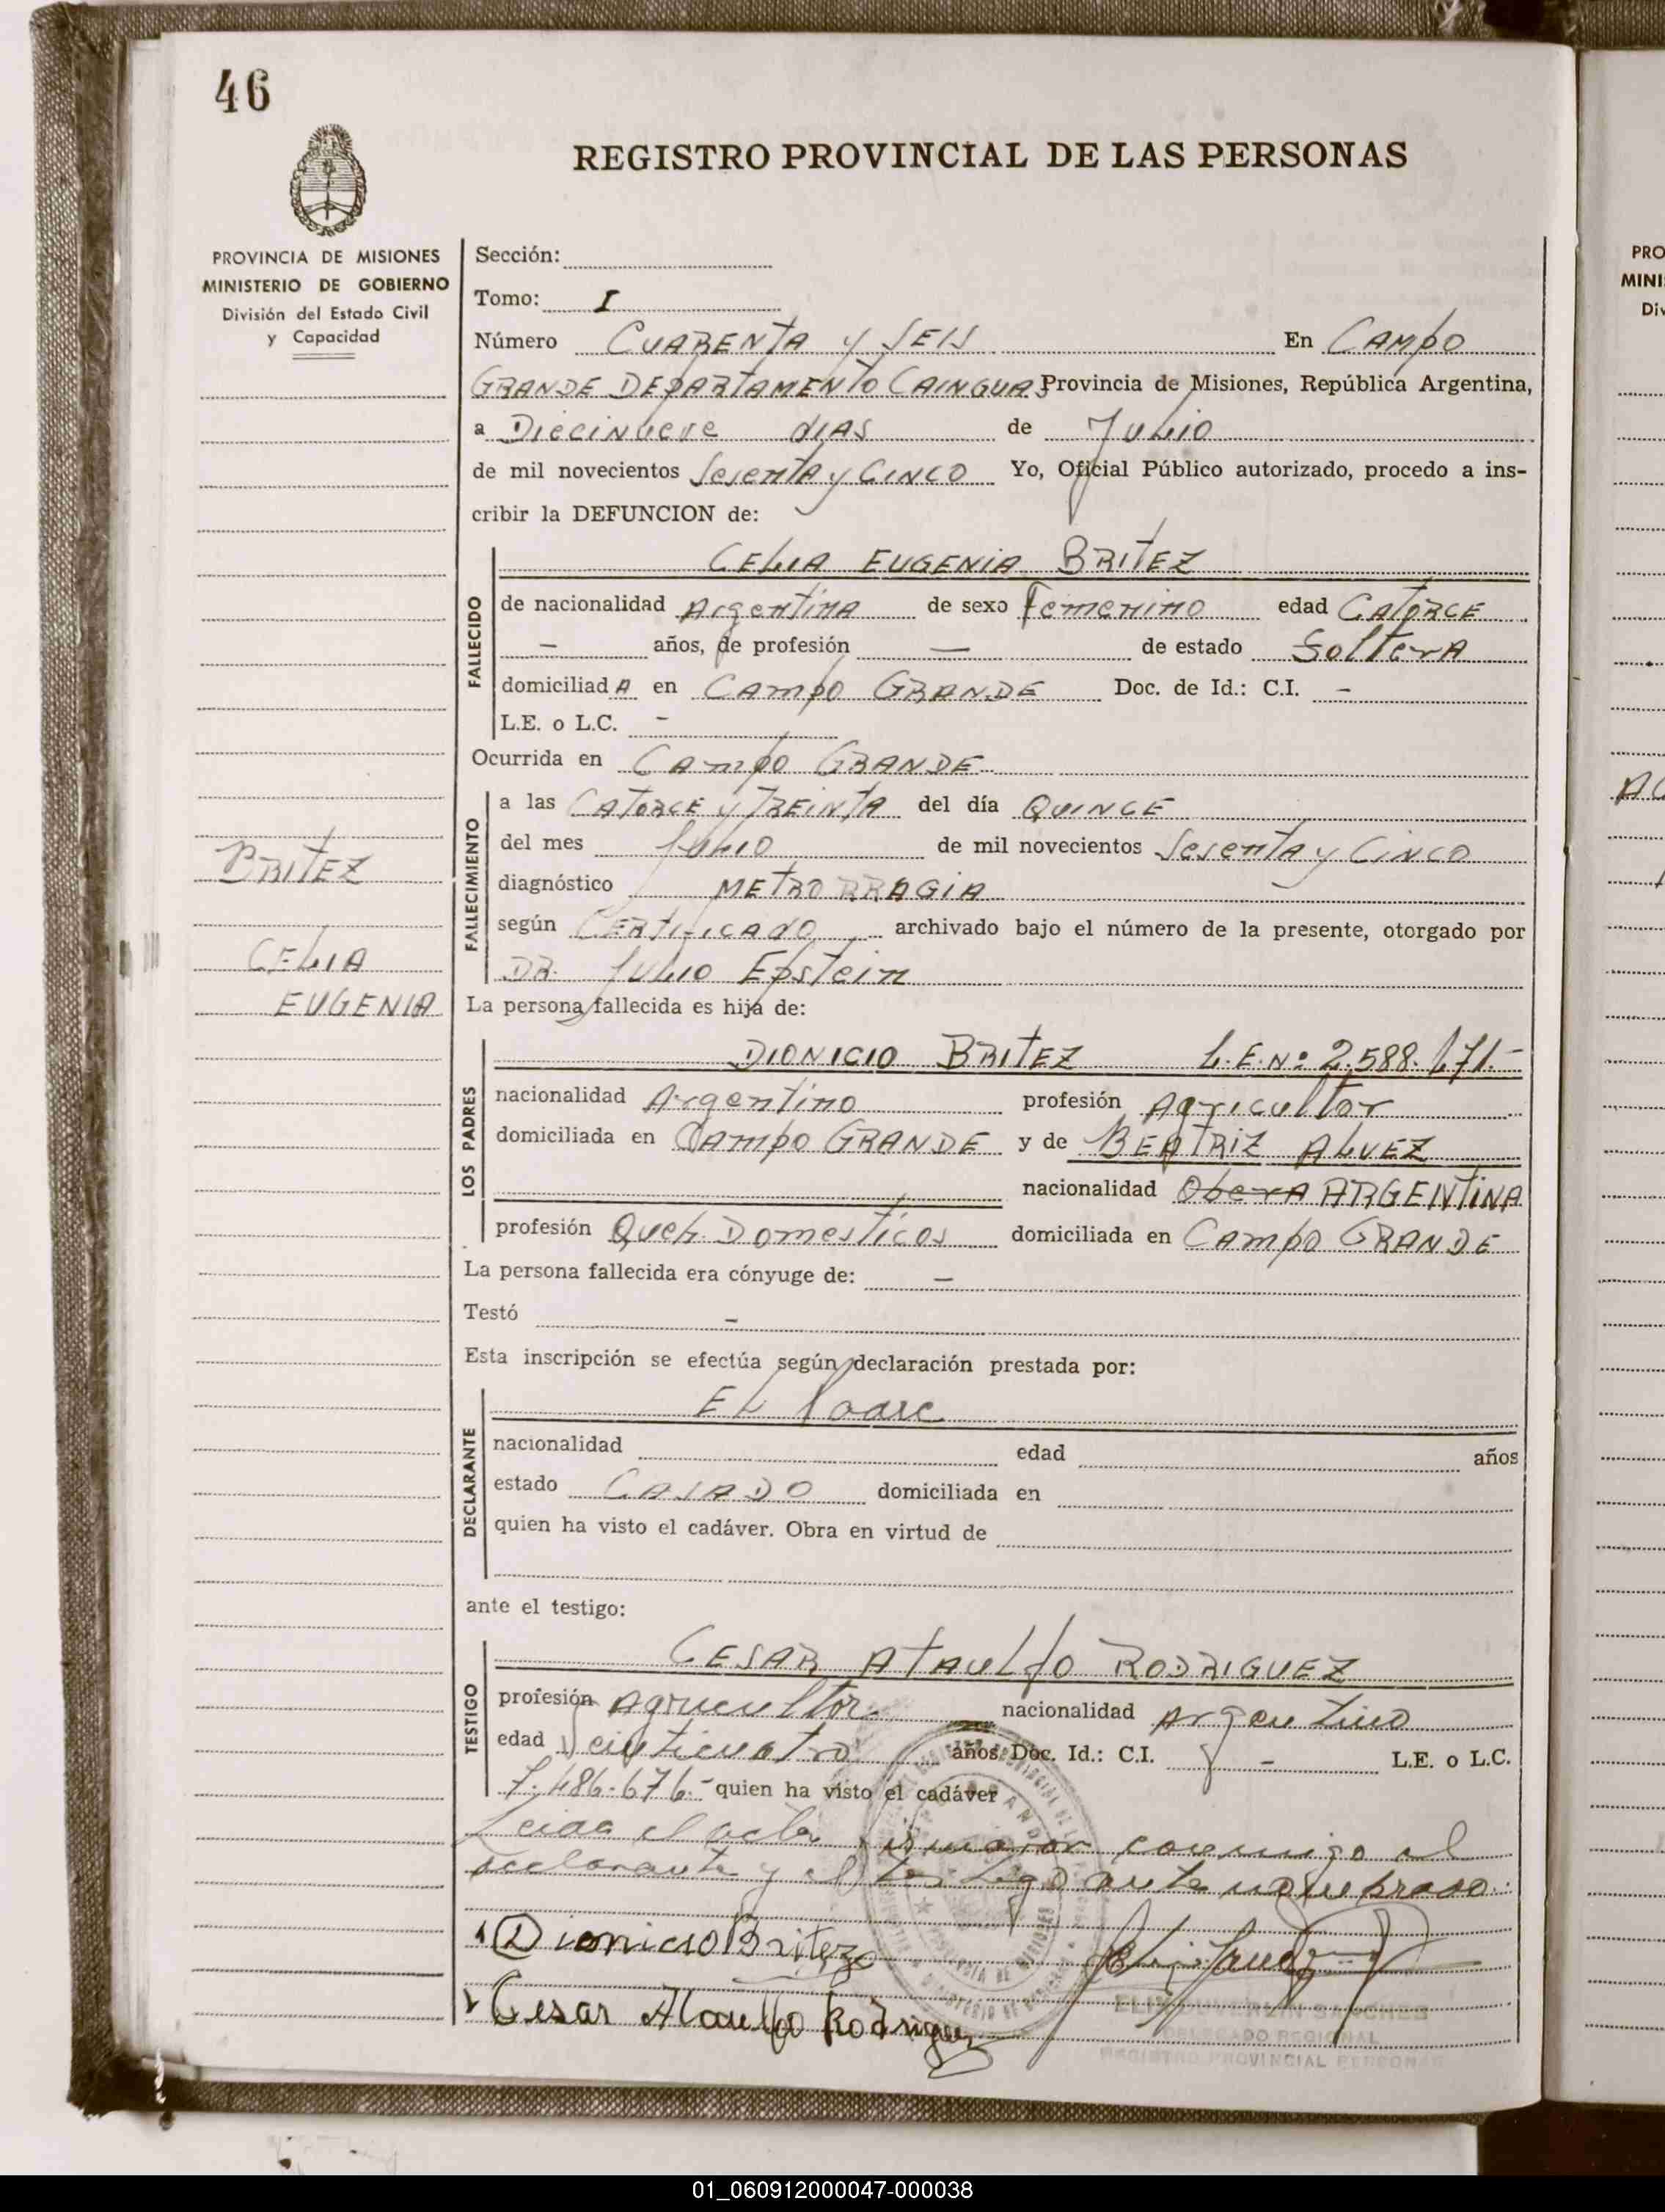 46
REGISTRO PROVINCIAL DE LAS PERSONAS
PROVINCIA DE MISIONES
MINISTERIO DE GOBIERNO
División del Estado Civil
y Capacidad
BRITEZ
CELIA
EUGENIA
Sección:
Tomo: I
Número CUARENTA y SEIS En CAMPO
GRANDE DEPARTAMENTO CAINGUAS Provincia de Misiones, República Argentina,
a Diecinueve dias de Julio
de mil novecientos Sesenta y Cinco Yo, Oficial Público autorizado, procedo a ins-
cribir la DEFUNCION de:
FALLECIDO
CELIA EUGENIA BRITEZ
de nacionalidad Argentina de sexo Femenino edad CATORCE
— años, de profesión — de estado Soltera
domiciliadA en CAMPO GRANDE Doc. de Id.: C.I. —
L.E. o L.C. —
Ocurrida en CAMPO GRANDE
FALLECIMIENTO
a las CATORCE y TREINTA del día QUINCE
del mes Julio de mil novecientos Sesenta y Cinco
diagnóstico METRORRAGIA
según CERTIFICADO archivado bajo el número de la presente, otorgado por
DR. Julio Epstein
La persona fallecida es hija de:
LOS PADRES
DIONICIO BRITEZ L.E.Nº 2.588.171.-
nacionalidad Argentino profesión Agricultor
domiciliada en CAMPO GRANDE y de BEATRIZ ALVEZ
nacionalidad Obera ARGENTINA
profesión Queh. Domesticos domiciliada en CAMPO GRANDE
La persona fallecida era cónyuge de: —
Testó —
Esta inscripción se efectúa según declaración prestada por:
DECLARANTE
EL Padre
nacionalidad edad años
estado CASADO domiciliada en
quien ha visto el cadáver. Obra en virtud de
ante el testigo:
TESTIGO
CESAR ATAULFO RODRIGUEZ
profesión Agricultor nacionalidad Argentino
edad Veinticuatro años. Doc. Id.: C.I. — L.E. o L.C.
7.486.676.- quien ha visto el cadáver
Leida el acta firmaron conmigo el
declarante y el testigo ante nombrado.
Dionicio Britez
Cesar Ataulfo Rodriguez
SANCHES
DELEGADO REGIONAL
REGISTRO PROVINCIAL PERSONAS
PRO
MINI
Div
01_060912000047-000038